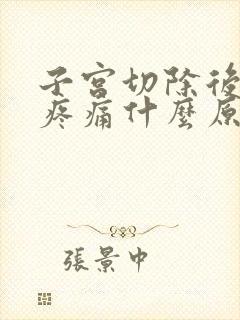 子宮切除後
疼痛什麼原
張景中